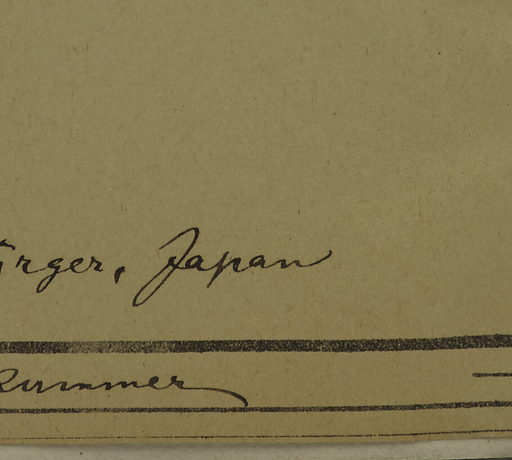 ürger, Japan
Rummer